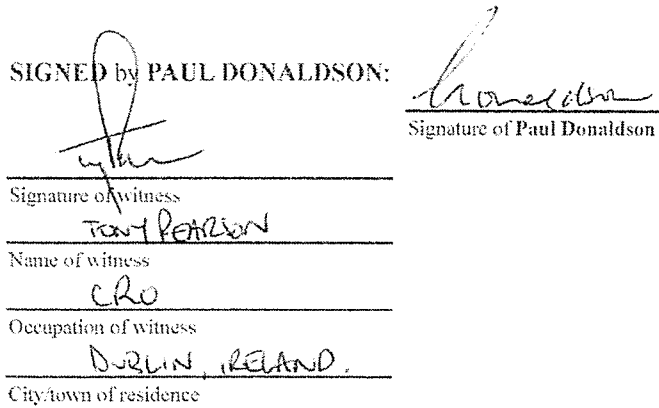 SIGNED by PAUL DONALDSON:
Donaldson
Signature of Paul Donaldson
Signature of witness
TONY PEARSON
Name of witness
CRO
Occupation of witness
DUBLIN, IRELAND.
City/town of residence